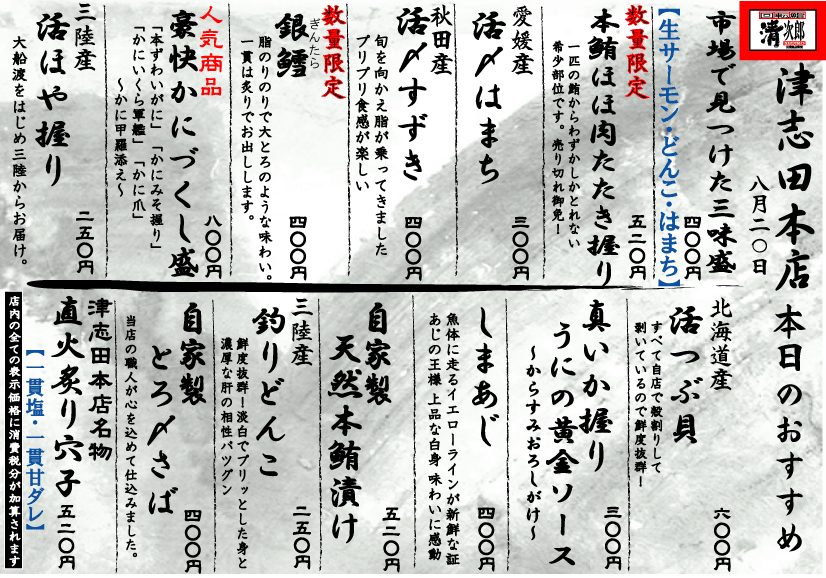 清次郎
津志田本店 本日のおすすめ
八月二〇日
市場で見つけた三味盛
四〇〇円
【生サーモン・どんこ・はまち】
数量限定
本鮪ほほ肉たたき握り
一匹の鮪からわずかしかとれない
希少部位です。売り切れ御免！
五二〇円
愛媛産
活〆はまち
三〇〇円
秋田産
活〆すずき
旬を向かえ脂が乗ってきました
プリプリ食感が楽しい
四〇〇円
数量限定
ぎんたら
銀鱈
脂のりのりで大とろのような味わい。
一貫は炙りでお出しします。
四〇〇円
人気商品
豪快かにづくし盛
「本ずわいがに」「かにみそ握り」
「かにいくら軍艦」「かに爪」
～かに甲羅添え～
八〇〇円
三陸産
活ほや握り
大船渡をはじめ三陸からお届け。
二五〇円
北海道産
活つぶ貝
すべて自店で殻割りして
剥いているので鮮度抜群！
六〇〇円
真いか握り
うにの黄金ソース
～からすみおろしがけ～
三〇〇円
しまあじ
魚体に走るイエローラインが新鮮な証
あじの王様 上品な白身 味わいに感動
四〇〇円
自家製
天然本鮪漬け
五二〇円
三陸産
釣りどんこ
鮮度抜群！淡白でプリッとした身と
濃厚な肝の相性バツグン
二五〇円
自家製
とろ〆さば
当店の職人が心を込めて仕込みました。
四〇〇円
津志田本店名物
直火炙り穴子
五二〇円
【一貫塩・一貫甘ダレ】
店内の全ての表示価格に消費税分が加算されます